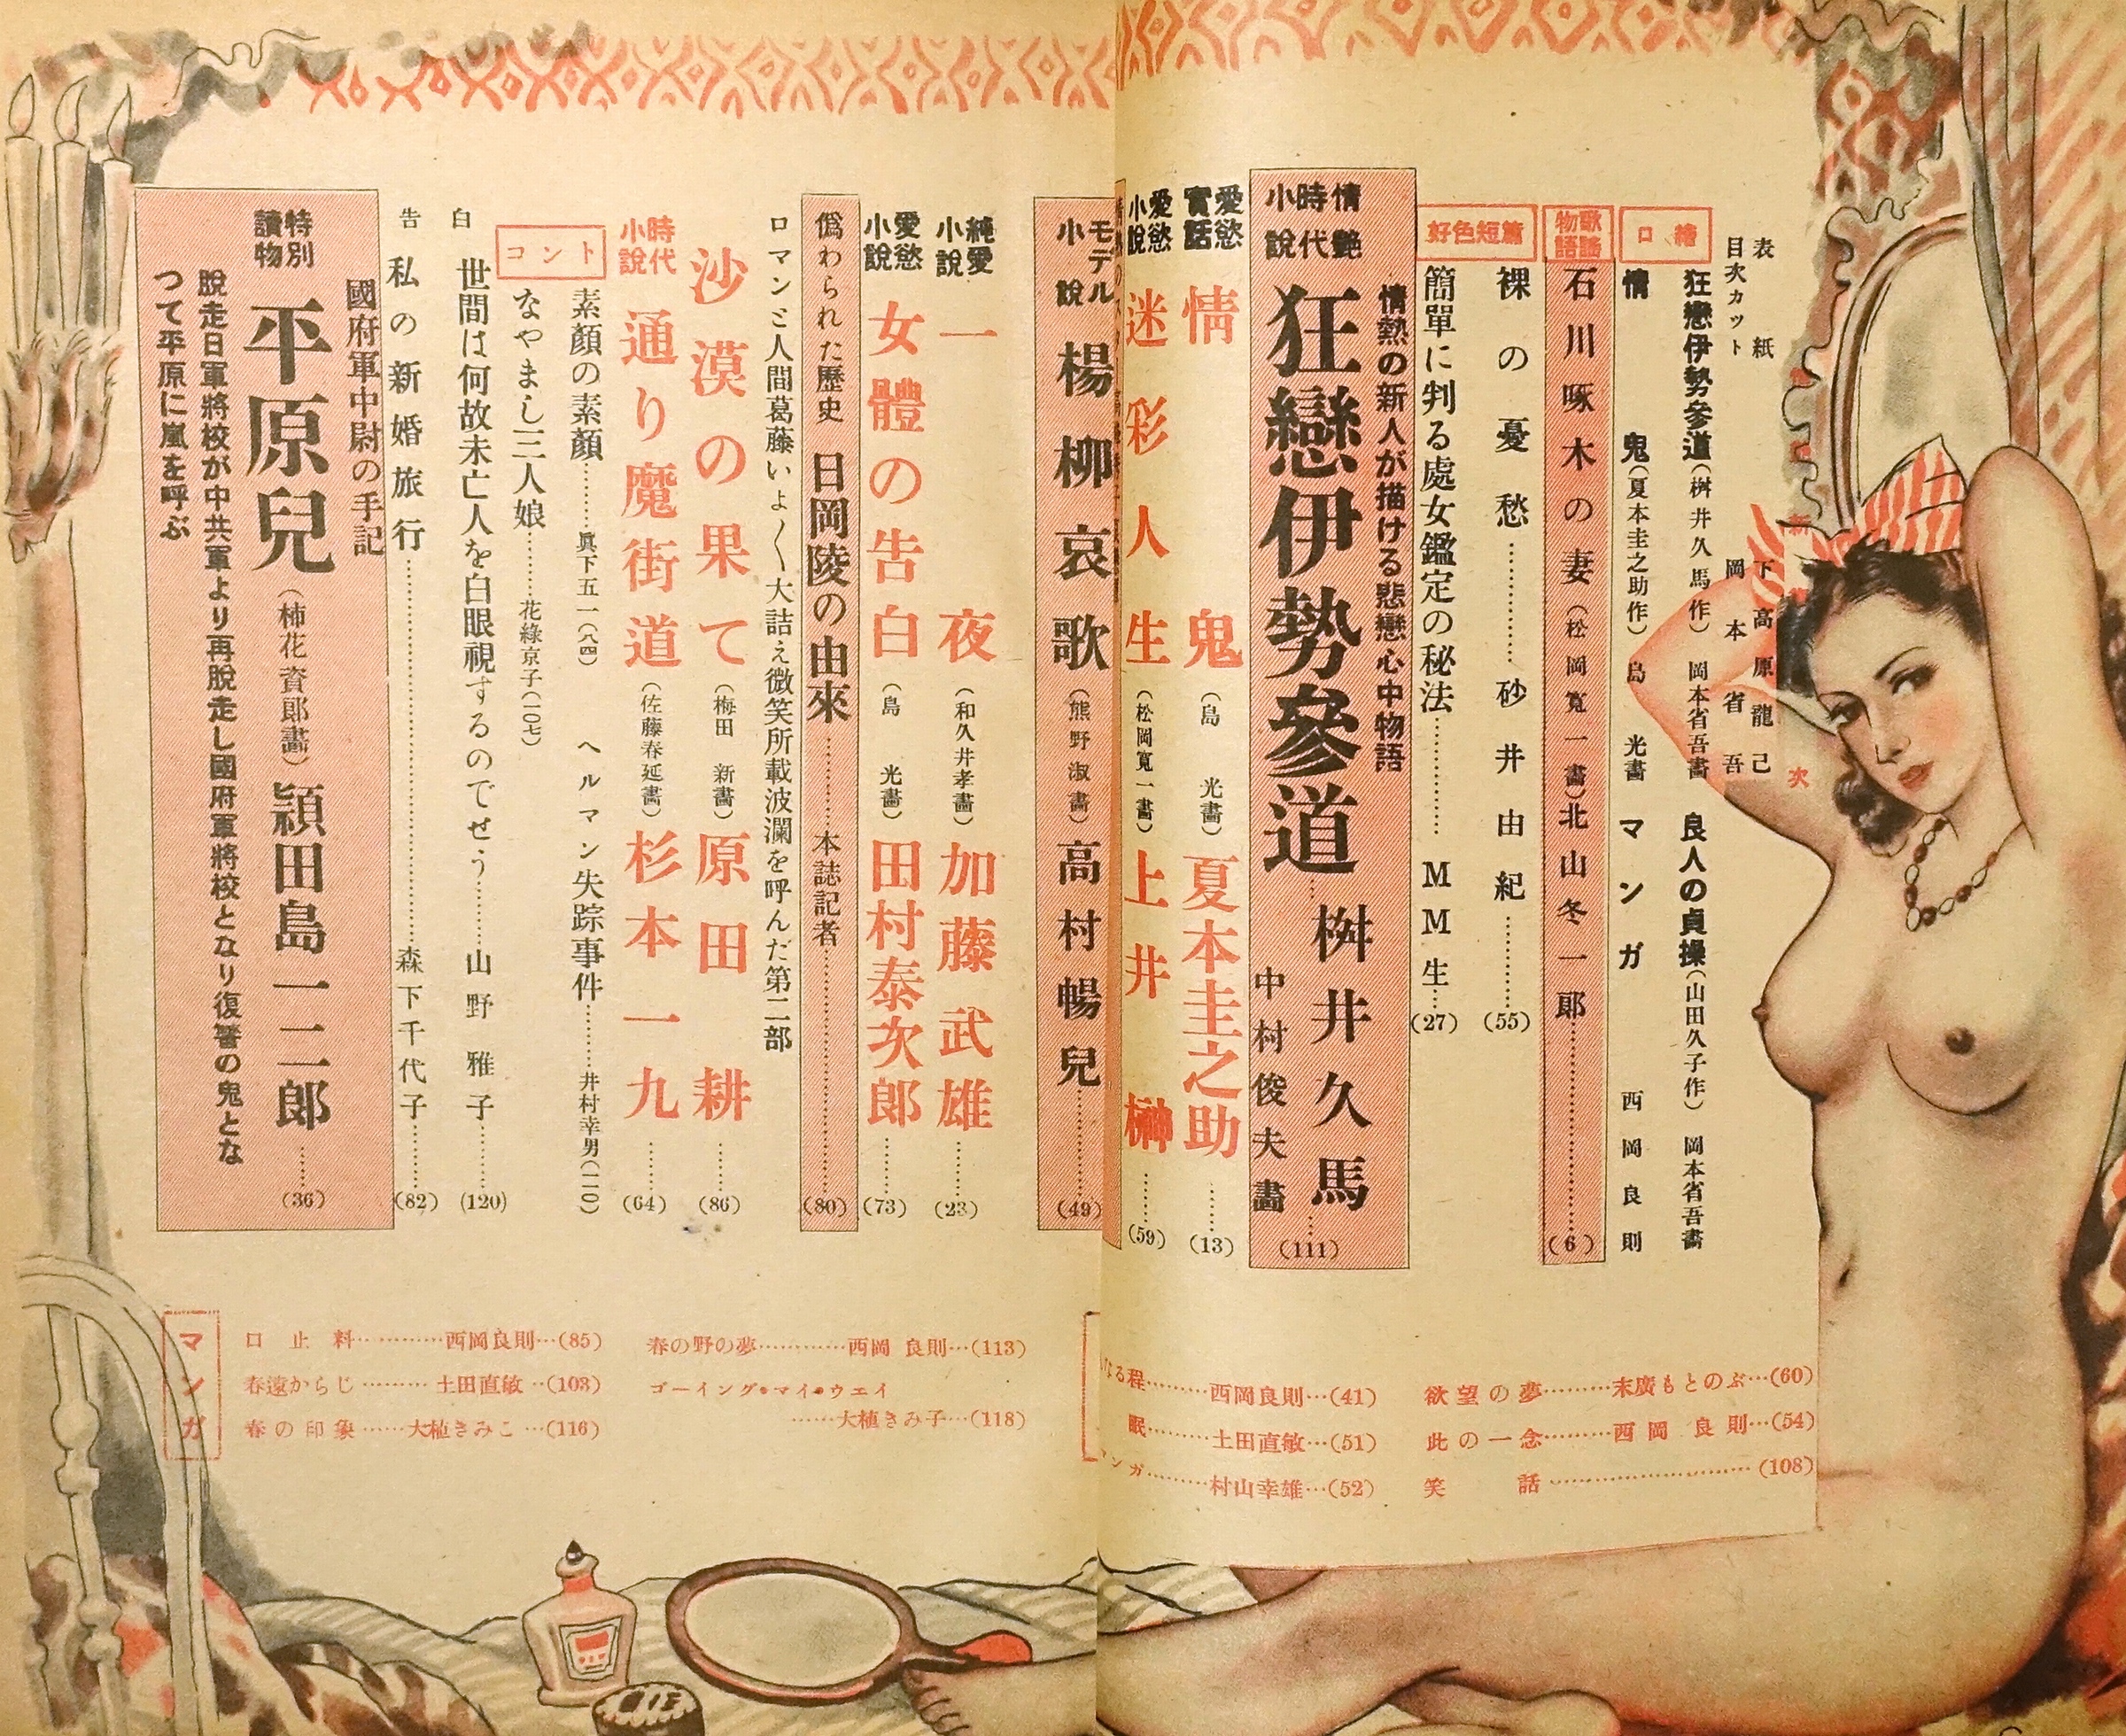 表紙 下高原龍己
目次カット 岡本省吾
目次
口繪
狂戀伊勢參道(桝井久馬作) 岡本省吾畵 良人の貞操(山田久子作) 岡本省吾畵
情鬼(夏本圭之助作) 島光畵 マンガ 西岡良則
歌謠物語
石川啄木の妻(松岡寬一畵)北山冬一郎…………(6)
好色短篇
裸の憂愁…………砂井由紀…………(55)
簡單に判る處女鑑定の秘法…………MM生…(27)
情熱の新人が描ける悲戀心中物語
情艷時代小說
狂戀伊勢參道……桝井久馬…(111)
中村俊夫畵
愛慾實話
情鬼(島光畵)夏本圭之助……(13)
愛慾小說
迷彩人生(松岡寬一畵)上井榊……(59)
モデル小說
楊柳哀歌(熊野淑畵)高村暢兒…………(49)
純愛小說
一夜(和久井孝畵)加藤武雄……(23)
愛慾小說
女體の告白(島光畵)田村泰次郎……(73)
僞わられた歷史 日岡陵の由來…………本誌記者…………(80)
ロマンと人間葛藤いよ〱大詰え微笑所載波瀾を呼んだ第二部
沙漠の果て(梅田新畵)原田耕……(86)
時代小說
通り魔街道(佐藤春延畵)杉本一九……(64)
コント
素顏の素顏………眞下五一(八四) ヘルマン失踪事件………井村幸男(一一〇)
なやまし三人娘………花綠京子(一〇七)
告白
世間は何故未亡人を白眼視するのでせう………山野雅子………(120)
私の新婚旅行…………森下千代子………(82)
國府軍中尉の手記
特別讀物
平原兒(柿花資郞畵)潁田島一二郎……(36)
脫走日軍將校が中共軍より再脫走し國府軍將校となり復讐の鬼とな
つて平原に嵐を呼ぶ
欲望の夢………末廣もとのぶ…(60)
此の一念………西岡良則…(54)
笑話…………(108)
なる程………西岡良則…(41)
眠………土田直敏…(51)
ンガ………村山幸雄…(52)
春の野の夢…………西岡良則…(113)
ゴーイング・マイ・ウエイ
……大植きみ子…(118)
マンガ
口止料…………西岡良則…(85)
春遠からじ………土田直敏…(103)
春の印象……大植きみこ…(116)